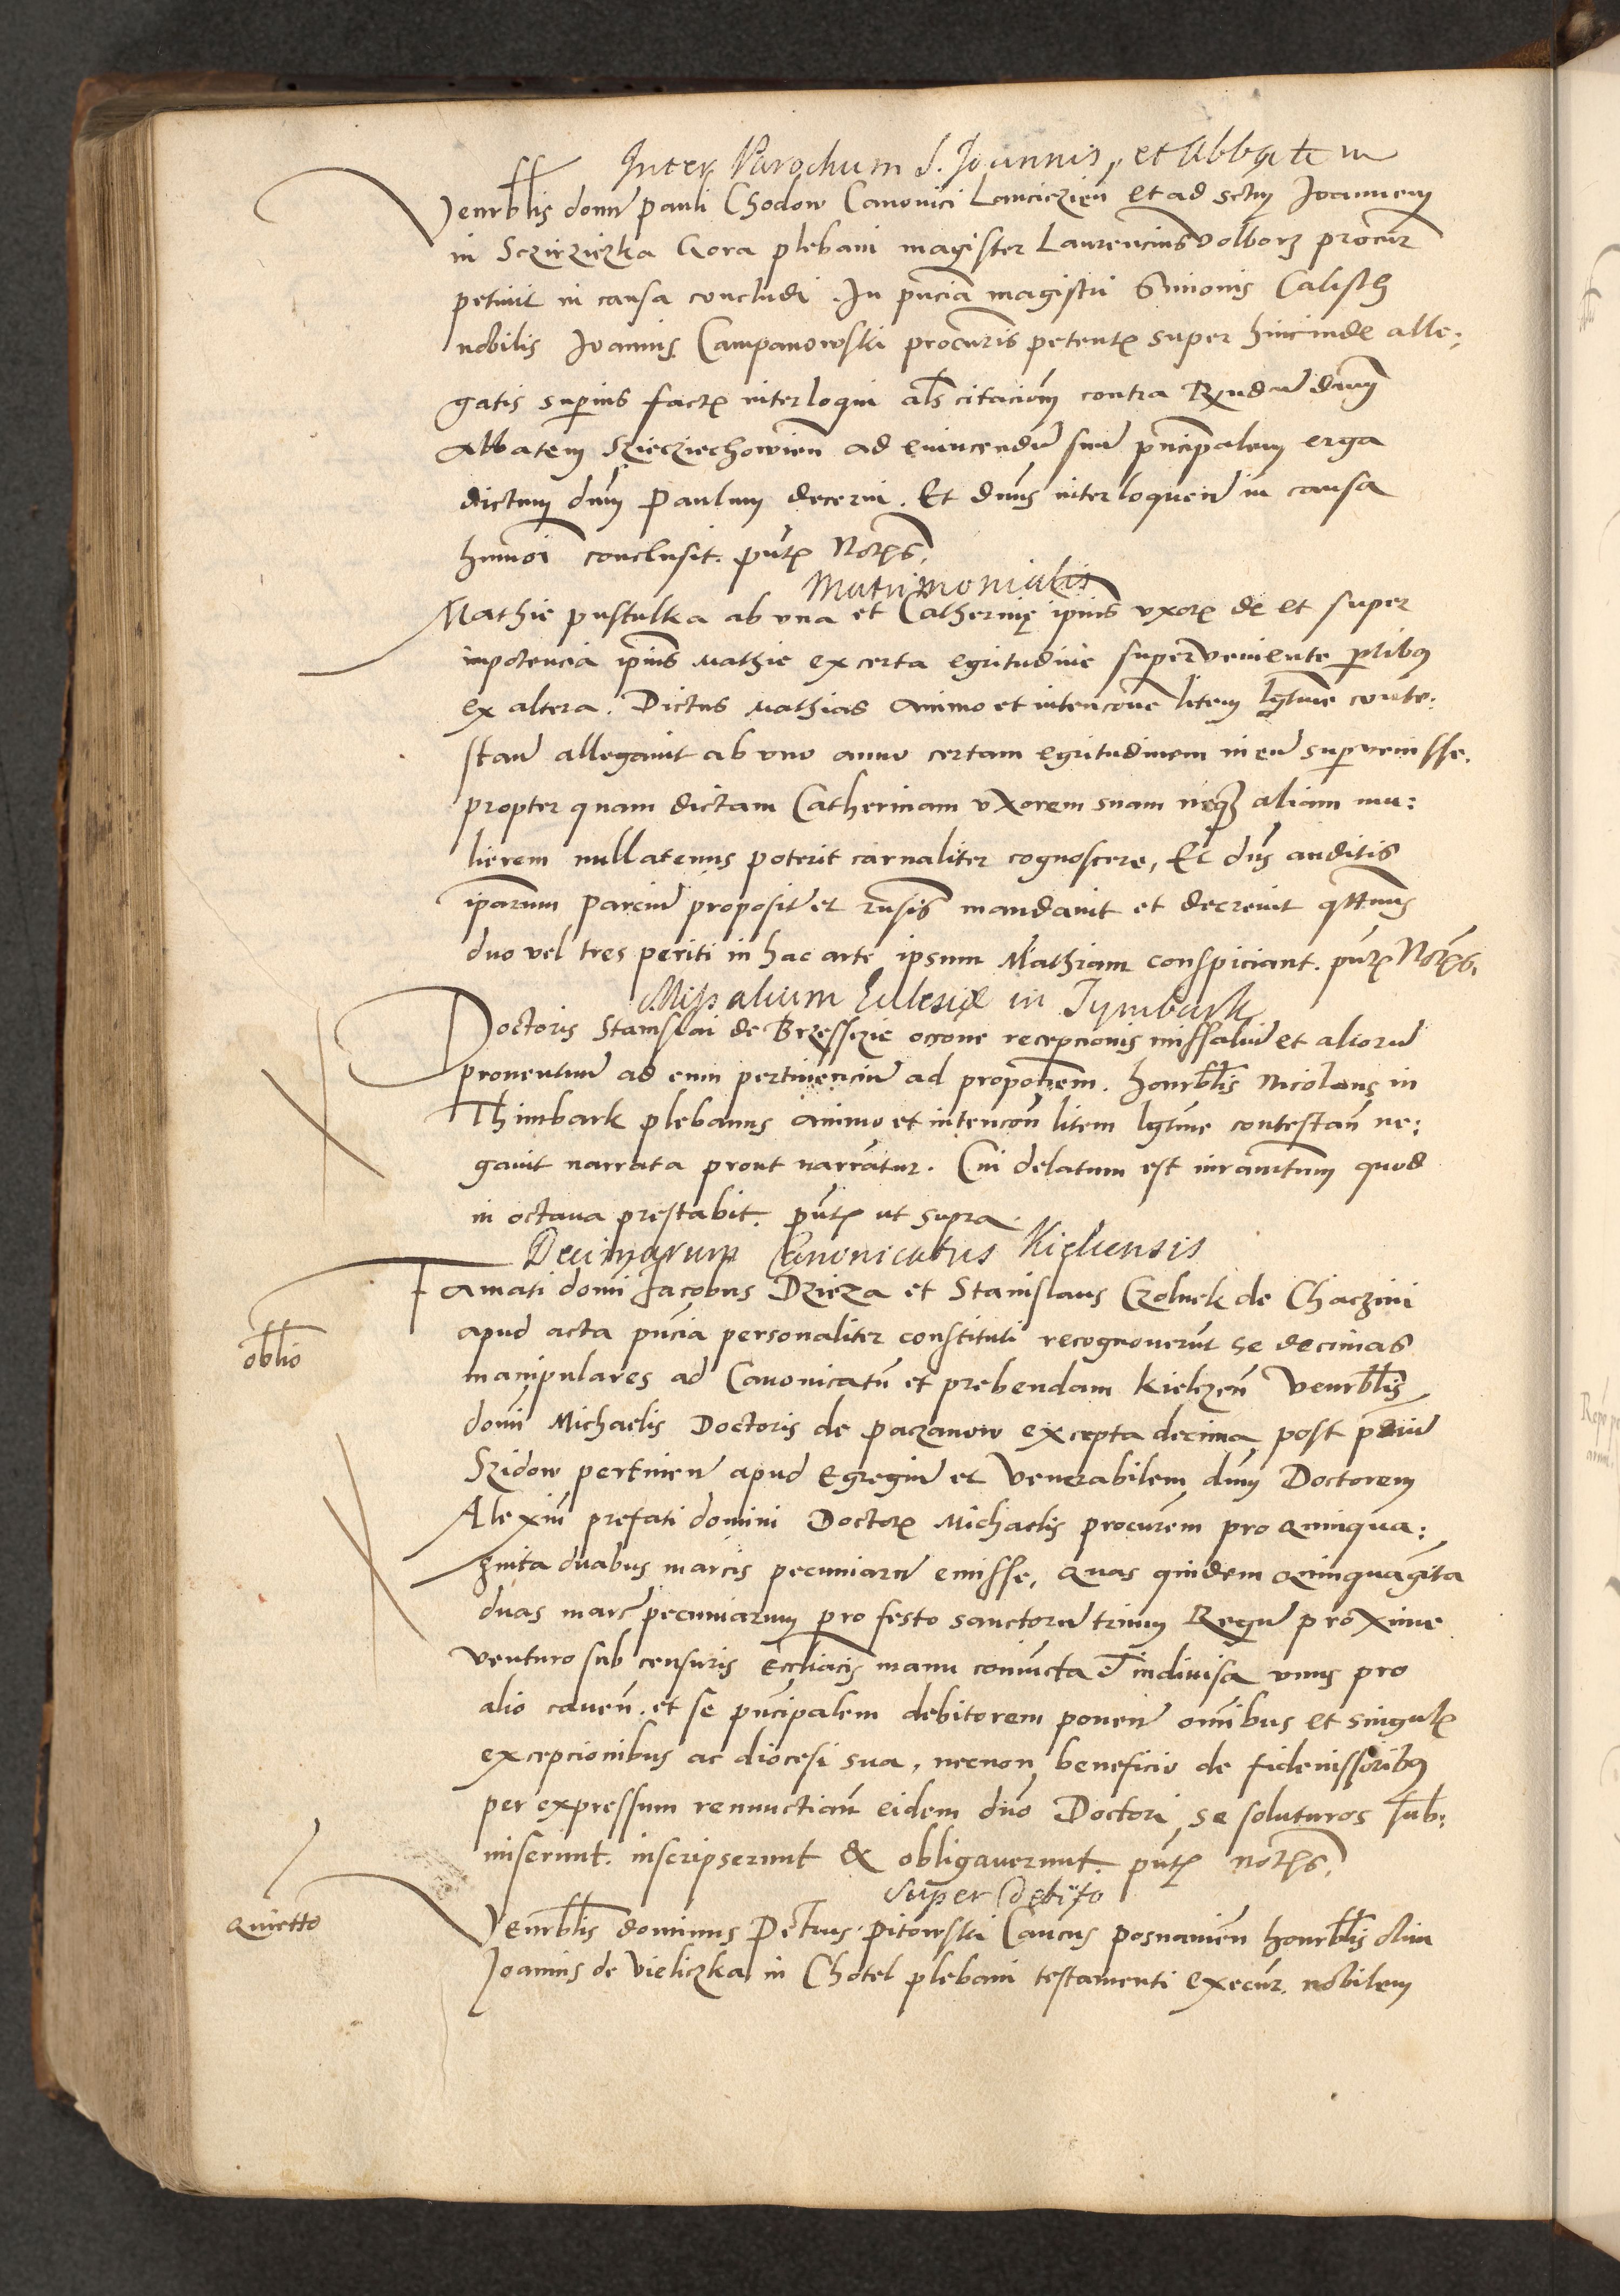 Inter Parochum S. Joannis, et Abbatem
Venrblis domi Pauli Chodow Canonici Lancizien et ad sctm Joannem
in Sczirziczka Gora plebani magister Laurencius Volborz procur
petiuit in causa concludi. In pncia magistri Simonis Calisch
nobilis Joannis Campanowski procuris petente super hincinde alle:
gatis superius facte interloqui als citacioni contra Rndum dnum
Abbatem Szieciechowien ad euincendum suum principalem erga
dictum dnm Paulum decerni. Et dnus interloquendo in causa
hmoi conclusit. pnte Notrs
Matrimonialis
Mathie pustulka ab vna et Catherine ipius vxore de et super
inpotencia ipius Mathie ex certa egritudine superveniente ptibus
ex altera. Dictus Mathias animo et intencone litem lgtime conte:
stan allegauit ab vno anno certam egritudinem in eum supervenisse.
propter quam dictam Catherinam vxorem suam neque aliam mu:
lierem nullatenus poterit carnaliter cognoscere, Et dns auditis
iparum parcium proposit et rnsis mandauit et decreuit qttnus
duo vel tres periti in hac arte ipsum Mathiam conspiciant. pnte Notrs.
Missalium Ecclesiæ in Tymbark
Doctoris Stanislai de Brzessczie occone recepcionis missalium et aliorum
prouentuum ad eum pertinencium ad propositionem. honrblis Nicolaus in
Thimbark plebanus animo et intencon litem lgtime contestan ne:
gauit narrata prout narrantur. Cui delatum est iuramentum quod
in octaua prestabit. pnte ut supra.
Decimarum Canonicatus Kielcensis
Famati domi Jacobus Dzieza et Stanislaus Czolnek de Chaczini
oblio
apud acta pncia personaliter constituti recognouerunt se decimas
manipulares ad Canonicatum et prebendam Kielczen Venrblis
domi Michaelis Doctoris de Paczanow excepta decima post
Szidow pertinen apud Egregium et Venerabilem dnm Doctorem
Alexium prefati domini Doctoris Michaelis procurem pro quinqua:
ginta duabus marcis pecuniarum emisse, quas quidem quinquaginta
duas marc pecuniarum pro festo sanctorum trium Regum proxime
venturo sub censuris eccliacis manu coniuncta et indiuisa vnus pro
alio cauen. et se pncipalem debitorem ponen omnibus et singulis
excepcionibus ac diocesi sua, necnon beneficio de fideiussoribus
per expressum renunctian eidem dno Doctori se soluturos sub:
miserunt. inscripserunt & obligauerunt. pnte notrs.
super debito
quietto
Venrblis dominus Petrus Pitowski Cancus posnanien honrblis olim
Joannis de Vieliczka in Chotel plebani testamenti execur. nobilem